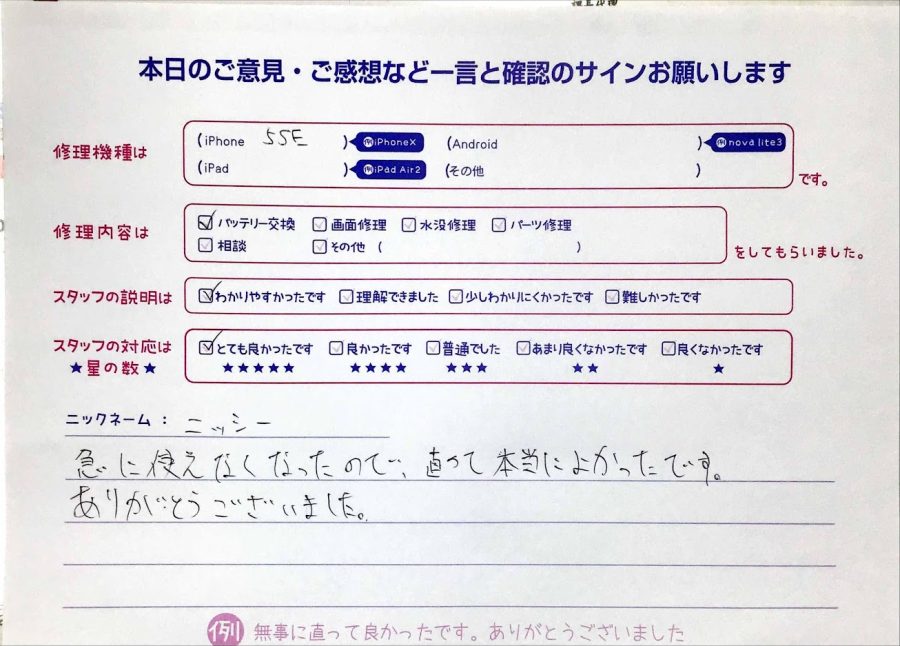 本日のご意見・ご感想など一言と確認のサインお願いします
修理機種は
(iPhone 5SE ) 例iPhoneX (Android ) 例nova lite3
(iPad ) 例iPad Air2 (その他 ) です。
修理内容は
バッテリー交換 画面修理 水没修理 パーツ修理
相談 その他 ( ) をしてもらいました。
スタッフの説明は わかりやすかったです 理解できました 少しわかりにくかったです 難しかったです
スタッフの対応は とても良かったです 良かったです 普通でした あまり良くなかったです 良くなかったです
★星の数★ ★★★★★ ★★★★ ★★★ ★★ ★
ニックネーム : ニッシー
急に使えなくなったので、直って本当によかったです。
ありがとうございました。
例 無事に直って良かったです。ありがとうございました